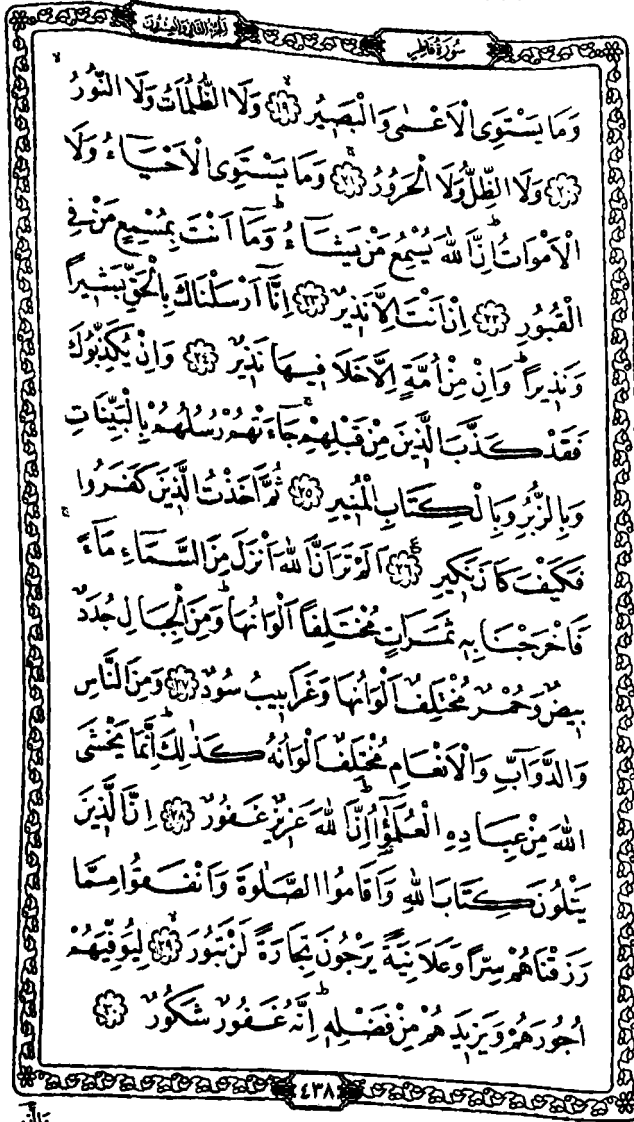 سُورَةُ فَاطِرٍ
اَلْجُزْءُ الثَّانِي وَالْعِشْرُونَ
وَمَا يَسْتَوِى الْاَعْمٰى وَالْبَصٖيرُۙ ﴿١٩﴾ وَلَا الظُّلُمَاتُ وَلَا النُّورُۙ
﴿٢٠﴾ وَلَا الظِّلُّ وَلَا الْحَرُورُۚ ﴿٢١﴾ وَمَا يَسْتَوِى الْاَحْيَٓاءُ وَلَا
الْاَمْوَاتُؕ اِنَّ اللّٰهَ يُسْمِعُ مَنْ يَشَٓاءُۚ وَمَٓا اَنْتَ بِمُسْمِعٍ مَنْ فِى
الْقُبُورِ ﴿٢٢﴾ اِنْ اَنْتَ اِلَّا نَذٖيرٌ ﴿٢٣﴾ اِنَّٓا اَرْسَلْنَاكَ بِالْحَقِّ بَشٖيراً
وَنَذٖيراًؕ وَاِنْ مِنْ اُمَّةٍ اِلَّا خَلَا فٖيهَا نَذٖيرٌ ﴿٢٤﴾ وَاِنْ يُكَذِّبُوكَ
فَقَدْ كَذَّبَ الَّذٖينَ مِنْ قَبْلِهِمْۚ جَٓاءَتْهُمْ رُسُلُهُمْ بِالْبَيِّنَاتِ
وَبِالزُّبُرِ وَبِالْكِتَابِ الْمُنٖيرِ ﴿٢٥﴾ ثُمَّ اَخَذْتُ الَّذٖينَ كَفَرُوا
فَكَيْفَ كَانَ نَكٖيرِ ﴿٢٦﴾ اَلَمْ تَرَ اَنَّ اللّٰهَ اَنْزَلَ مِنَ السَّمَٓاءِ مَٓاءًۚ
فَاَخْرَجْنَا بِهٖ ثَمَرَاتٍ مُخْتَلِفاً اَلْوَانُهَاؕ وَمِنَ الْجِبَالِ جُدَدٌ
بٖيضٌ وَحُمْرٌ مُخْتَلِفٌ اَلْوَانُهَا وَغَرَابٖيبُ سُودٌ ﴿٢٧﴾ وَمِنَ النَّاسِ
وَالدَّوَٓابِّ وَالْاَنْعَامِ مُخْتَلِفٌ اَلْوَانُهُ كَذٰلِكَؕ اِنَّمَا يَخْشَى
اللّٰهَ مِنْ عِبَادِهِ الْعُلَمٰٓؤُاؕ اِنَّ اللّٰهَ عَزٖيزٌ غَفُورٌ ﴿٢٨﴾ اِنَّ الَّذٖينَ
يَتْلُونَ كِتَابَ اللّٰهِ وَاَقَامُوا الصَّلٰوةَ وَاَنْفَقُوا مِمَّا
رَزَقْنَاهُمْ سِرّاً وَعَلَانِيَةً يَرْجُونَ تِجَارَةً لَنْ تَبُورَۙ ﴿٢٩﴾ لِيُوَفِّيَهُمْ
اُجُورَهُمْ وَيَزٖيدَهُمْ مِنْ فَضْلِهٖؕ اِنَّهُ غَفُورٌ شَكُورٌ ﴿٣٠﴾
٤٣٨